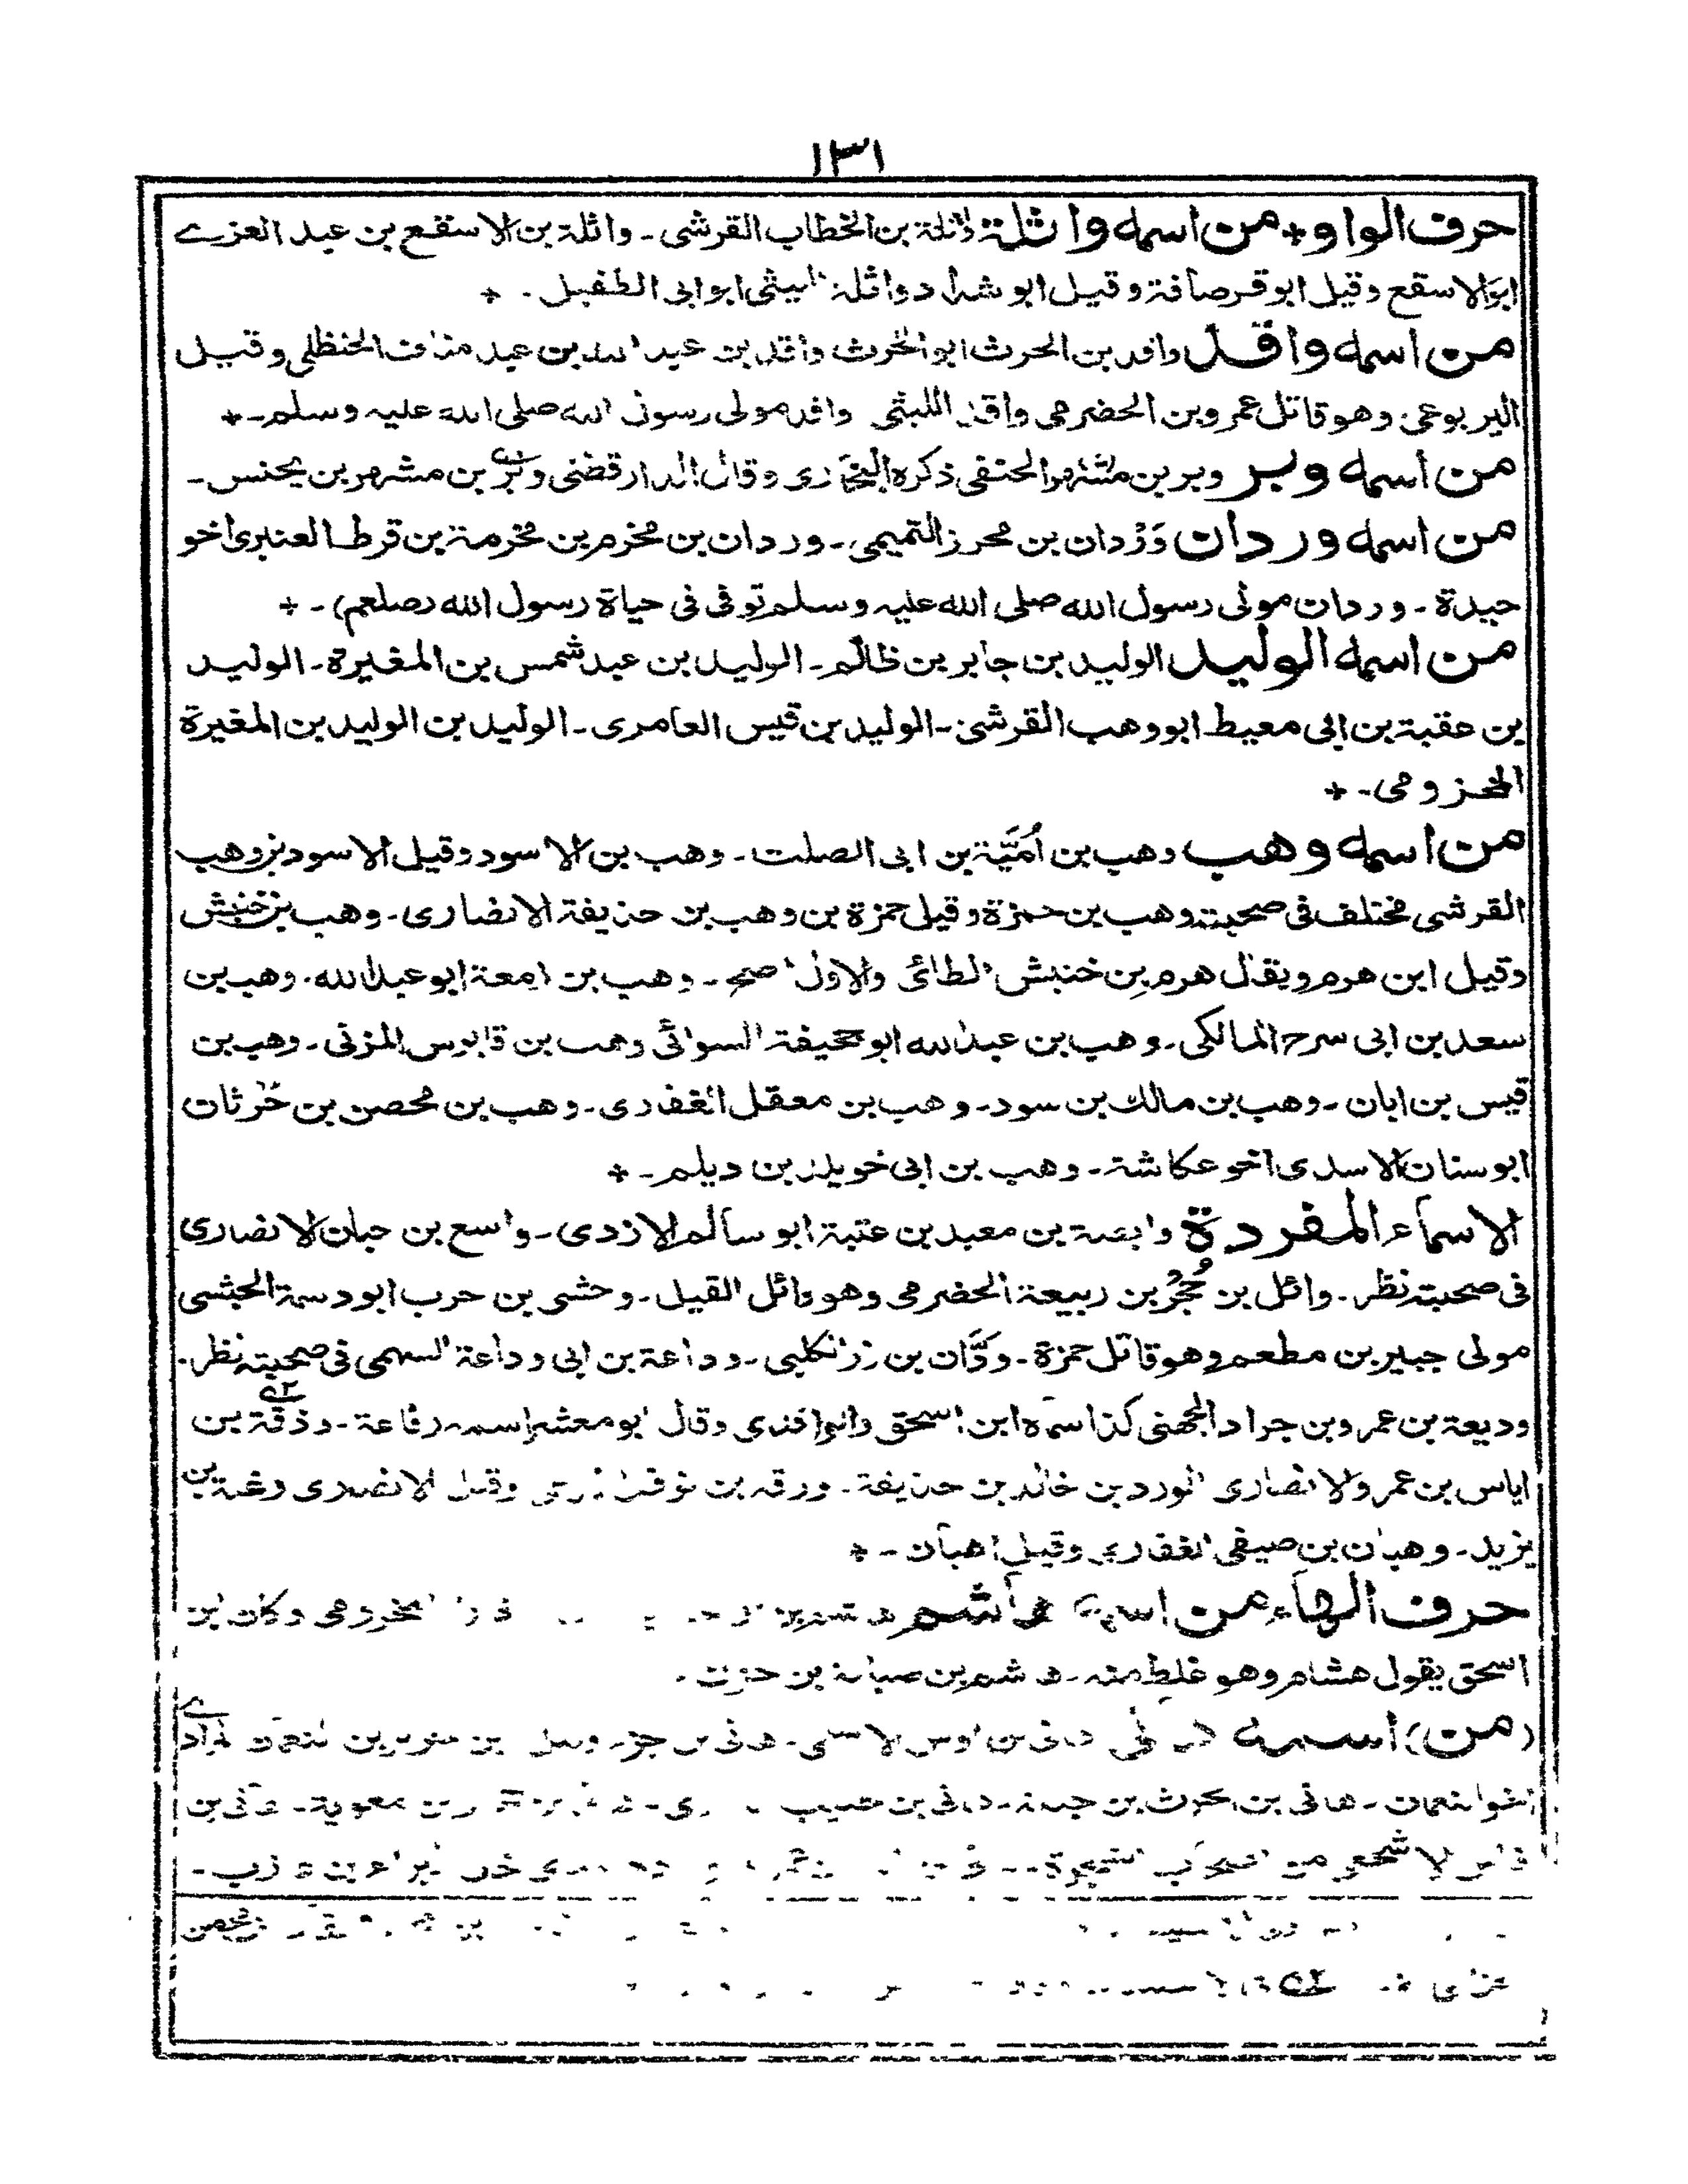 ١٣١
حرف الواو + من اسمه واثلة واثلة بن الخطاب القرشى ـ واثلة بن الاسقع بن عبد العزے
ابو الاسقع وقيل ابو قرصافة وقيل ابو شداد واثلة الليثى ابو ابى الطفيل ـ +
من اسمه واقد واقد بن الحرث ابو الحرث واقد بن عبد الله بن عبد مناف الحنظلى وقيل
اليربوعى وهو قاتل عمرو بن الحضرمى واقد الليثى واقد مولى رسول الله صلى الله عليه وسلم ـ +
من اسمه وبر وبر بن مشهر الحنفى ذكره البخارى وقال الدارقطنى وبر بن مشهر بن يحنس ـ
من اسمه وردان وَرْدان بن محرز التميمى ـ وردان بن مخرم بن مخرمة بن قرط العنبرى اخو
حيدة ـ وردان مولى رسول الله صلى الله عليه وسلم توفى فى حياة رسول الله (صلعم) ـ +
من اسمه الوليد الوليد بن جابر بن ظالم ـ الوليد بن عبد شمس بن المغيرة ـ الوليد
بن عقبة بن ابى معيط ابو وهب القرشى ـ الوليد بن قيس العامرى ـ الوليد بن الوليد بن المغيرة
المخزومى ـ +
من اسمه وهب وهب بن اُمَيَّة بن ابى الصلت ـ وهب بن الاسود وقيل الاسود بن وهب
القرشى مختلف فى صحبته وهب بن حمزة وقيل حمزة بن وهب بن حذيفة الانصارى ـ وهب بن خنبش
وقيل ابن هرم ويقال هرم بن خنبش الطائى والاول اصح ـ وهب بن زمعة ابو عبد الله ـ وهب بن
سعد بن ابى سرح المالكى ـ وهب بن عبد الله ابو جحيفة السوائى وهب بن قابوس المزنى ـ وهب بن
قيس بن ابان ـ وهب بن مالك بن سود ـ وهب بن معقل الغفارى ـ وهب بن محصن بن حرثان
ابو سنان الاسدى اخو عكاشة ـ وهب بن ابى خويلد بن ديلم ـ +
الاسماء المفردة وابصة بن معبد بن عتبة ابو سالم الازدى ـ واسع بن حبان الانصارى
فى صحبته نظر ـ وائل بن حُجْر بن ربيعة الحضرمى وهو وائل القيل ـ وحشى بن حرب ابو دسمة الحبشى
مولى جبير بن مطعم وهو قاتل حمزة ـ ودَّان بن زر الكلبى ـ وداعة بن ابى وداعة السهمى فى صحبته نظر ـ
وديعة بن عمرو بن جراد الجهنى كذا سماه ابن اسحق والواقدى وقال ابو معشر اسمه رفاعة ـ وذقة بن
اياس بن عمرو الانصارى الورد بن خالد بن حذيفة ـ ورقه بن نوفل وقيل الانصارى بن
يزيد ـ وهبان بن صيفى الغفارى وقيل اهبان ـ +
حرف الهاء من اسمه هاشم المخزومى وكان ابن
اسحق يقول هشام وهو غلط منه ـ هاشم بن صبابة بن حزن ـ
(من) اسمه هانى هانى بن اوس الاسلمى ـ
اخو النعمان ـ هانى بن الحرث بن جبلة ـ هانى بن حبيب معوية ـ هانى بن
الاشجعى من اصحاب الشجرة ـ خال البراء بن عازب ـ